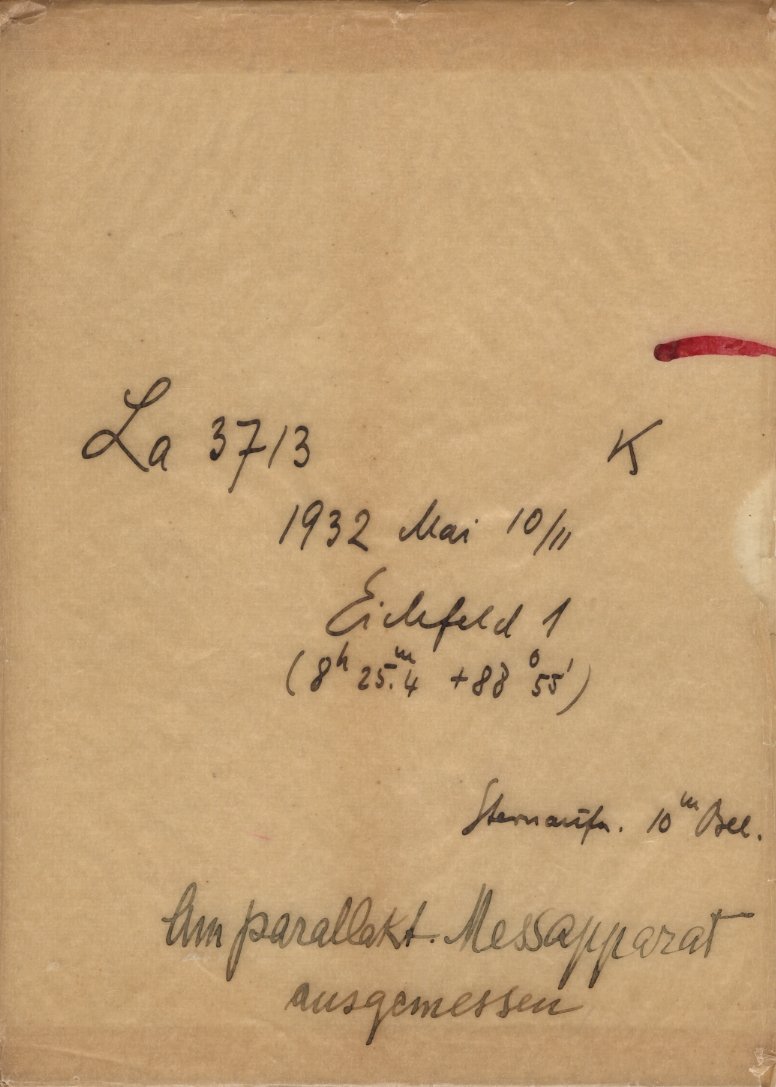 La 3713 K
1932 Mai 10/11
Eichfeld 1
(8h 25m.4 +88° 55')
Sternaufn. 10m Bel.
Am parallakt. Messapparat
ausgemessen